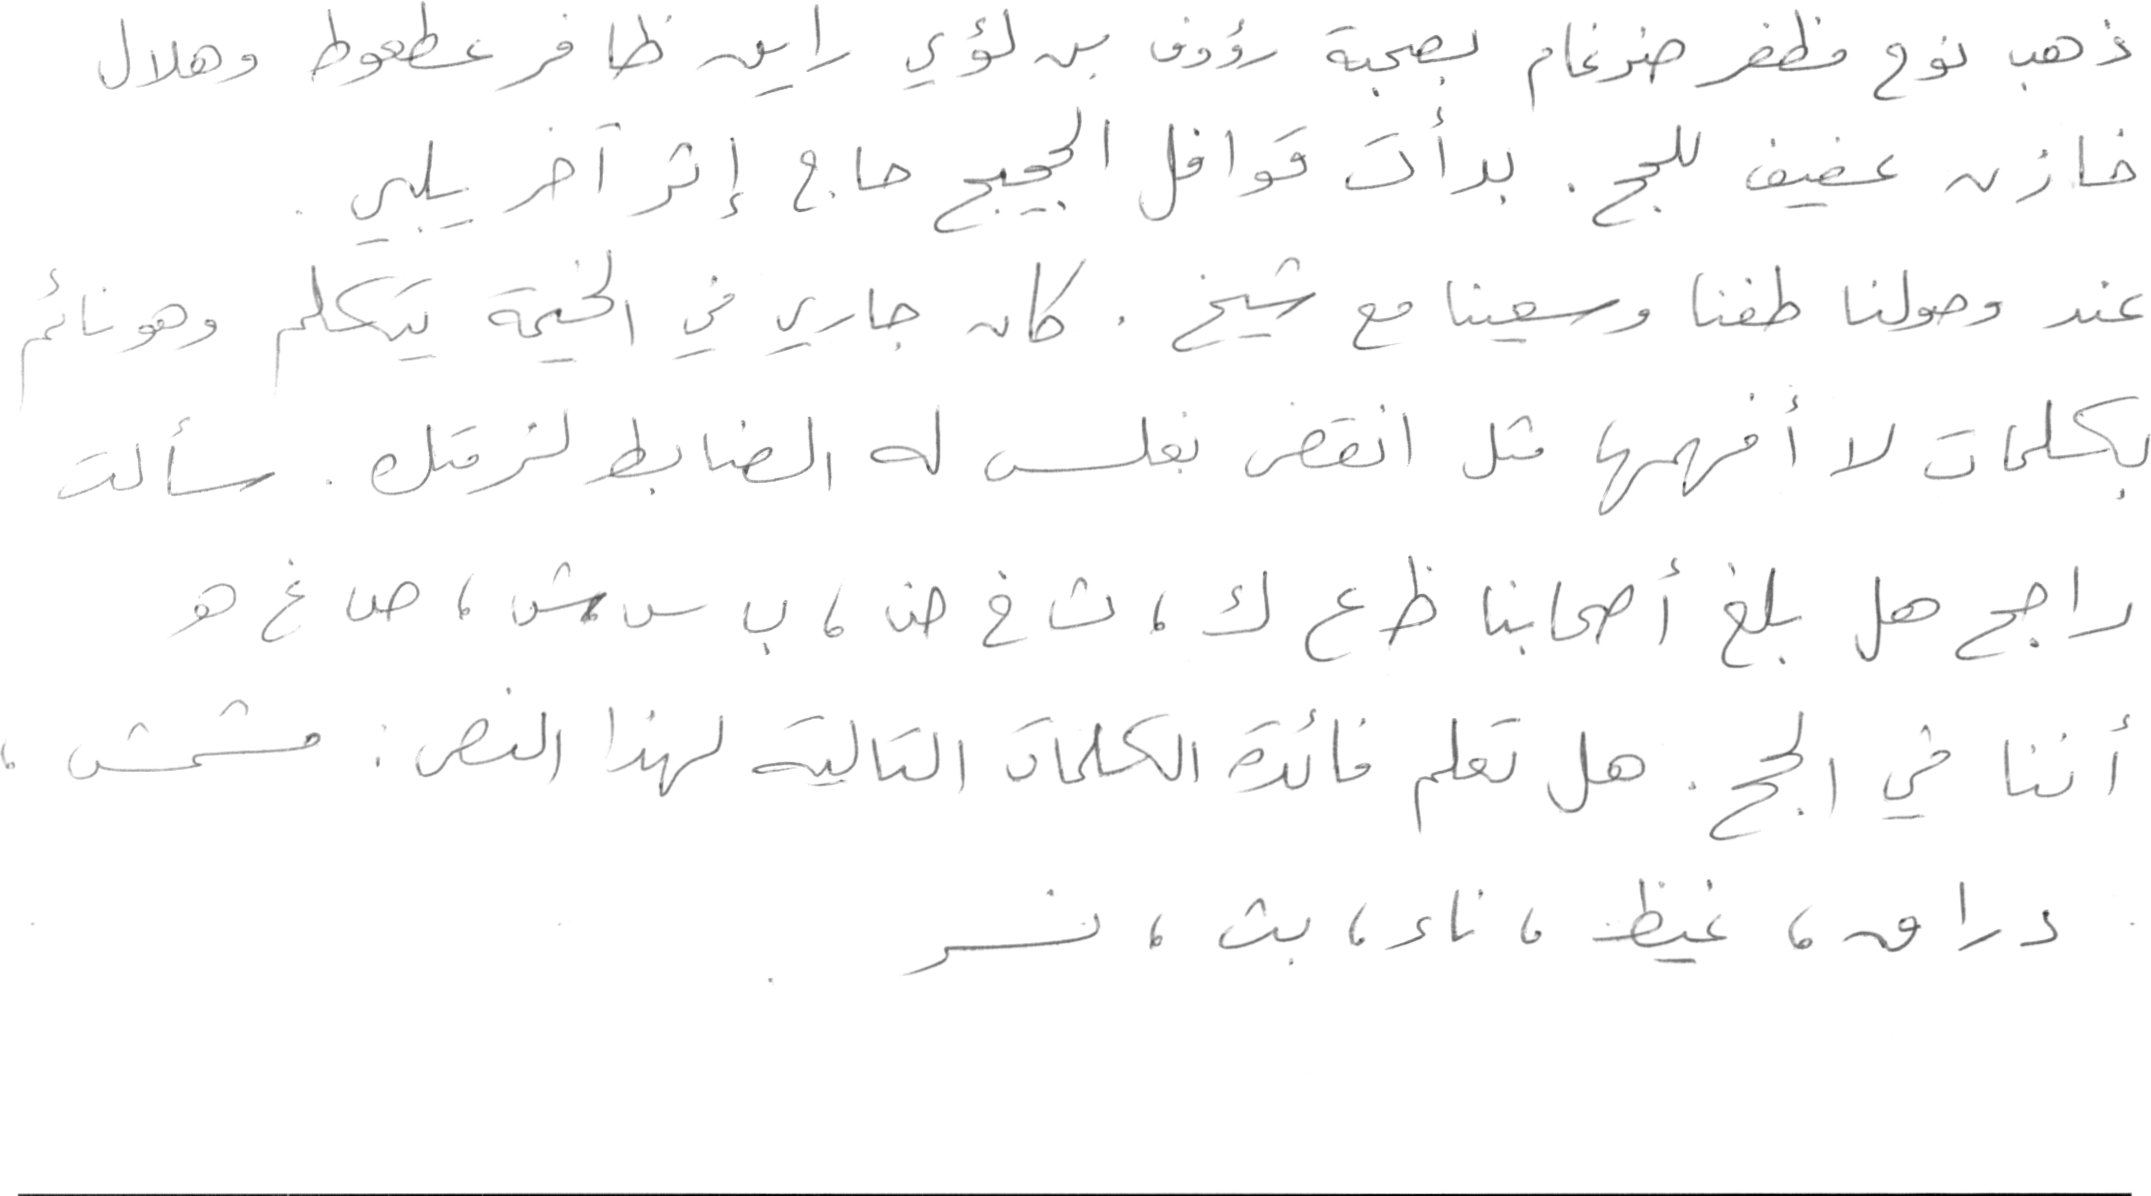 ذهب نوح مظفر ضرغام بصحبة رؤوف بن لؤي راين ظافر عطعوط وهلال
خازن عفيف للحج. بدأت قوافل الحجيج حاج إثر آخر يلبي.
عند وصولنا طفنا وسعينا مع شيخ. كان جاري في الخيمة يتكلم وهو نائم
بكلمات لا أفهمها مثل انقض بغلس له الضابط لزمتك. سألت
راجح هل بلغ أصحابنا ظ ع ك، ث خ ض، ب س ش، ص غ هـ
أننا في الحج. هل تعلم فائدة الكلمات التالية لهذا النص: مشمش،
دراق، غيظ، ناء، بث، نسر.